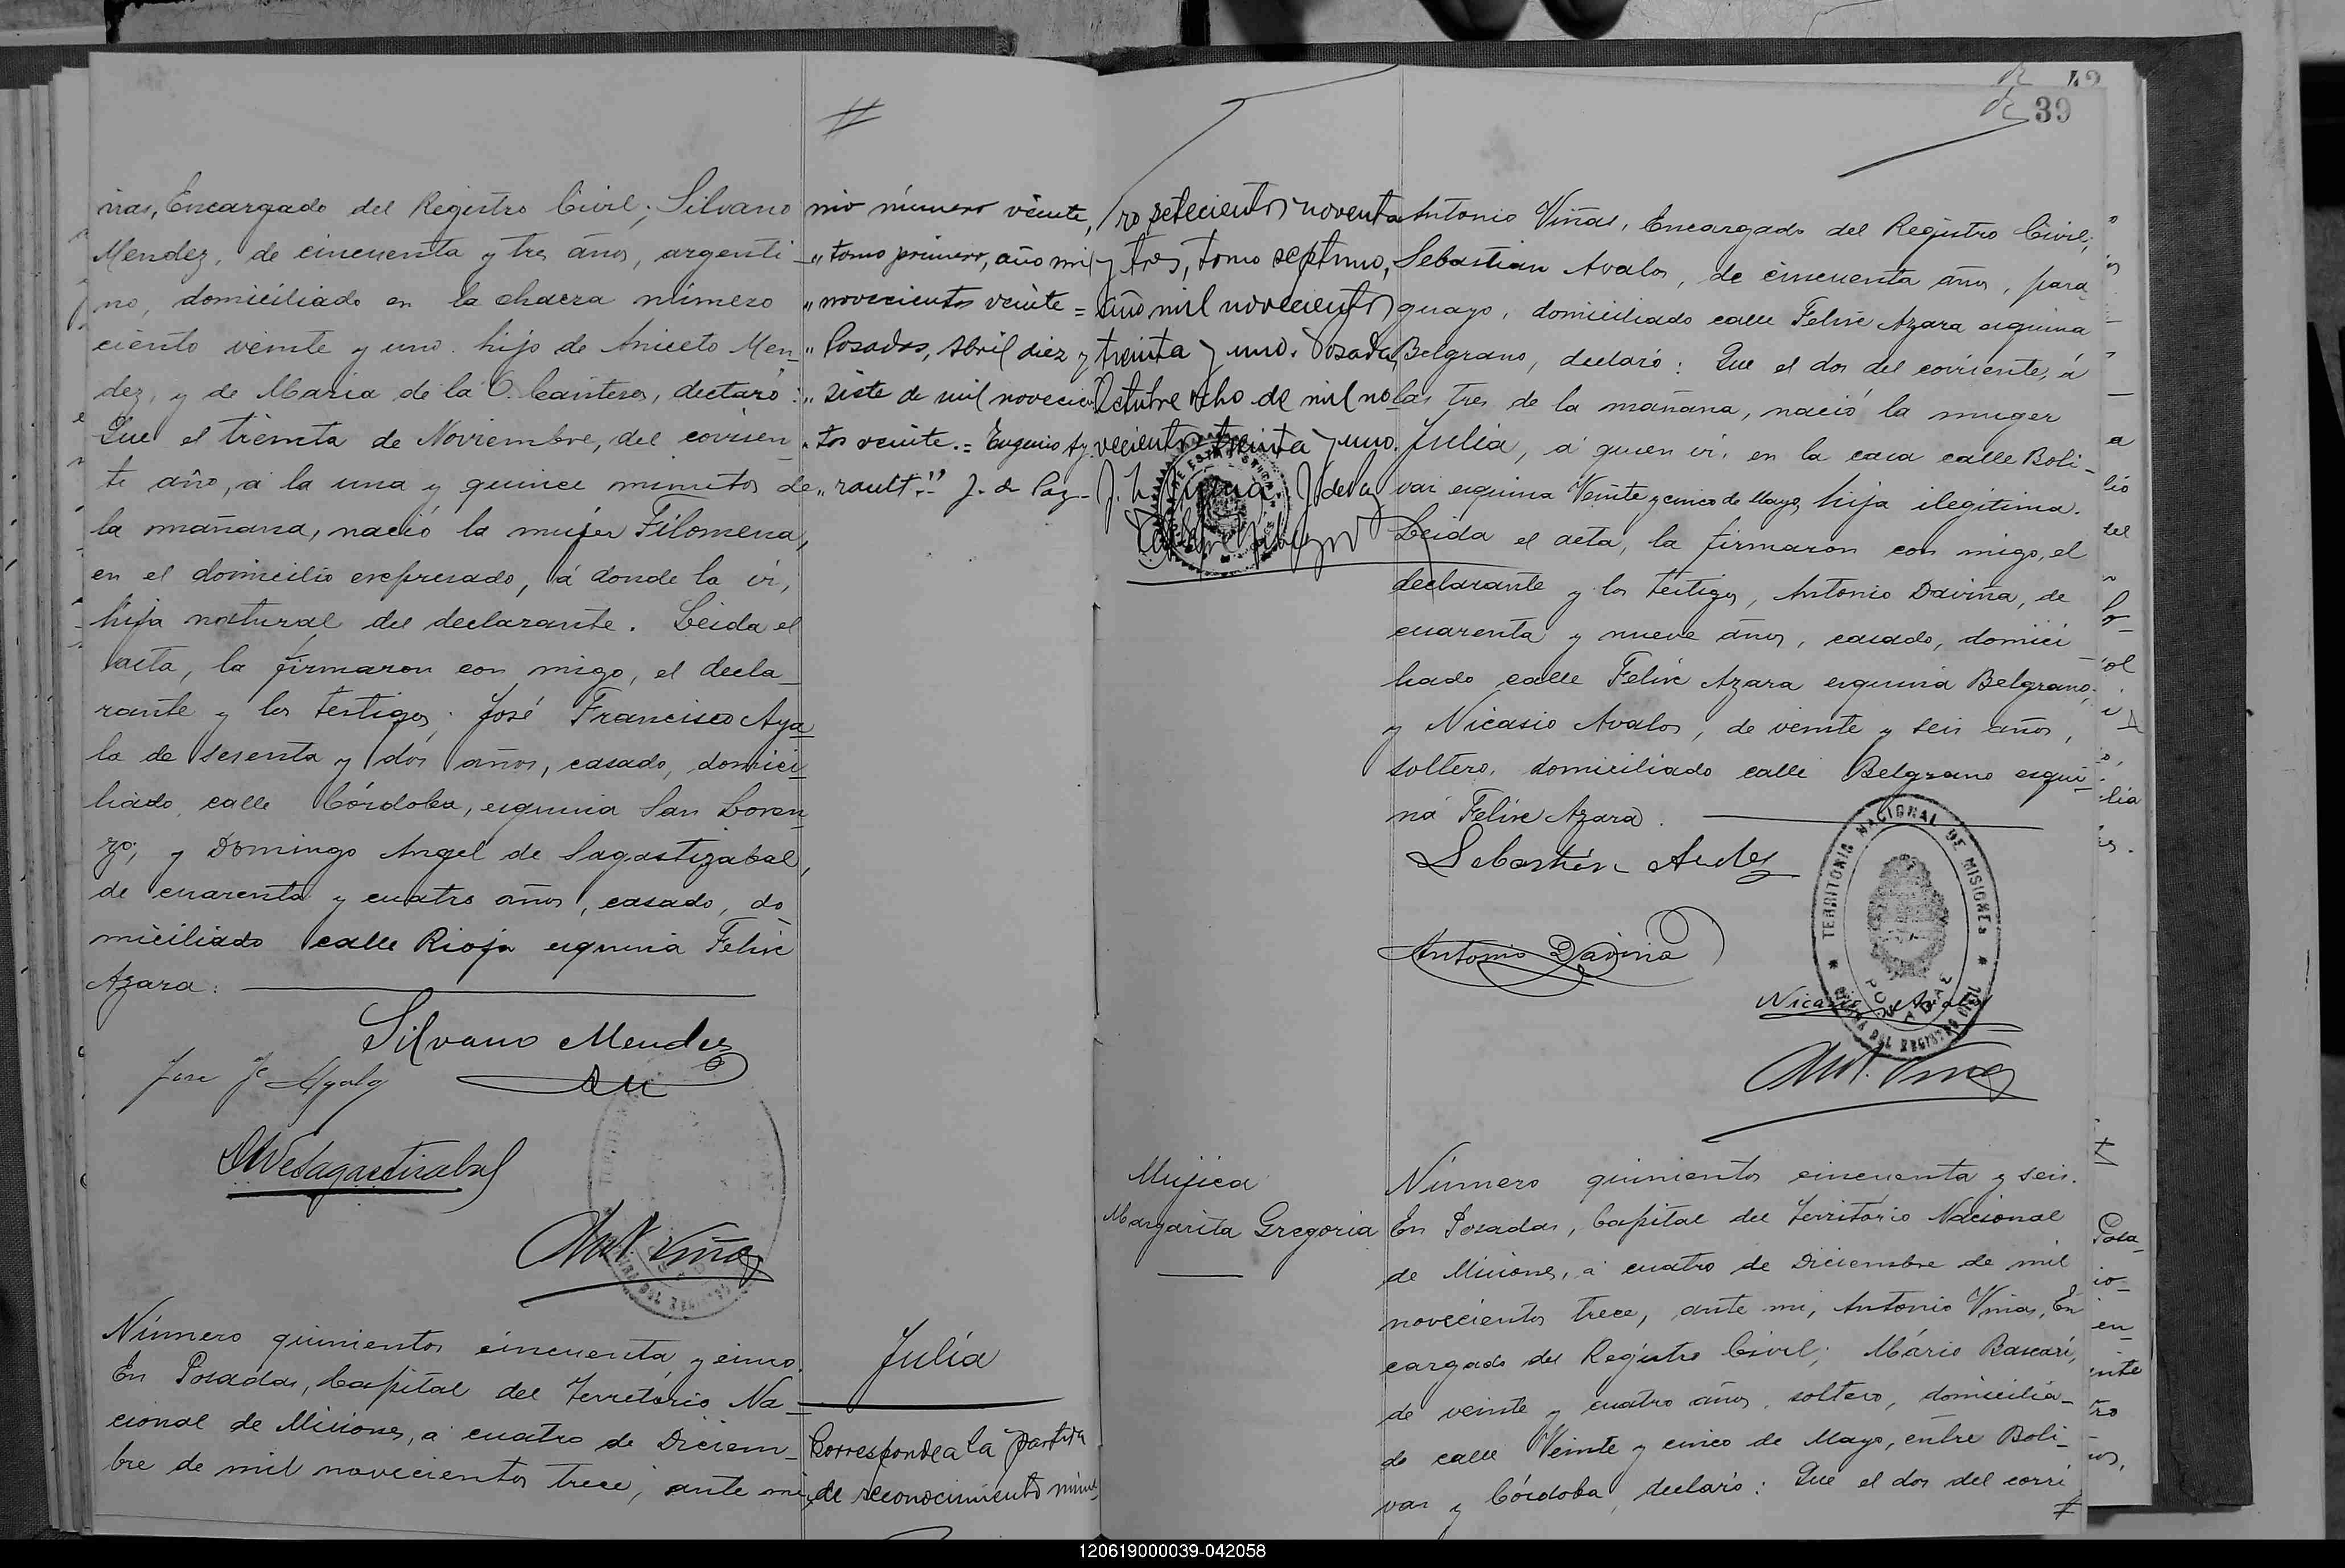 ñas, Encargado del Registro Civil; Silvano
Mendez, de cincuenta y tres años, argenti-
no, domiciliado en la chacra número
ciento veinte y uno. hijo de Aniceto Men-
dez, y de Maria de la O. Cantero, declaró:
Que el treinta de Noviembre, del corrien-
te año, á la una y quince minutos de
la mañana, nació la mujer Filomena,
en el domicilio expresado, á donde la vi,
hija natural del declarante. Leida el
acta, la firmaron con migo, el decla-
rante y los testigos; José Francisco Aya
la de sesenta y dos años, casado, domici-
liado, calle Córdoba, esquina San Loren-
zo; y Domingo Angel de Sagastizabal,
de cuarenta y cuatro años, casado, do
miciliado calle Rioja esquina Felix
Azara.
Silvano Mendez
Jose Fco Ayala
Ant. Viñas
Número quinientos cincuenta y cinco.
En Posadas, Capital del Territorio Na-
cional de Misiones, á cuatro de Diciem-
bre de mil novecientos trece, ante mi,
#
mio número veinte,
" tomo primero, año mil
" novecientos veinte =
" Posadas, Abril diez y
" siete de mil novecien
" tos veinte. = Eugenio Ay
" rault." J. de Paz
Julia
Corresponde a la partida
de reconocimiento núme
39
ro setecientos noventa
y tres, tomo septimo,
año mil novecientos
treinta y uno. Posadas,
Octubre ocho de mil no
vecientos treinta y uno.
Antonio Viñas, Encargado del Registro Civil;
Sebastian Avalos, de cincuenta años, para
guayo, domiciliado calle Felix Azara esquina
Belgrano, declaró: Que el dos del corriente, á
las tres de la mañana, nació la muger
Julia, á quien vi, en la casa calle Boli-
var esquina Veinte y cinco de Mayo, hija ilegitima.
Leida el acta, la firmaron con migo, el
declarante y los testigos, Antonio Daviña, de
cuarenta y nueve años, casado, domici
liado calle Felix Azara esquina Belgrano;
y Nicasio Avalos, de veinte y seis años,
soltero, domiciliado calle Belgrano esqui-
na Felix Azara.
Antonio Daviña
Nicasio Avalos
TERRITORIO NACIONAL DE MISIONES
POSADAS
OFICINA DEL REGISTRO CIVIL
Ant. Viñas
Mujica
Margarita Gregoria
Número quinientos cincuenta y seis.
En Posadas, Capital del Territorio Nacional
de Misiones, á cuatro de Diciembre de mil
novecientos trece, ante mi, Antonio Viñas, En
cargado del Registro Civil; Mário Bascari,
de veinte y cuatro años, soltero, domicilia-
do calle Veinte y cinco de Mayo, entre Boli-
var y Córdoba, declaró: Que el dos del corri
#
120619000039-042058